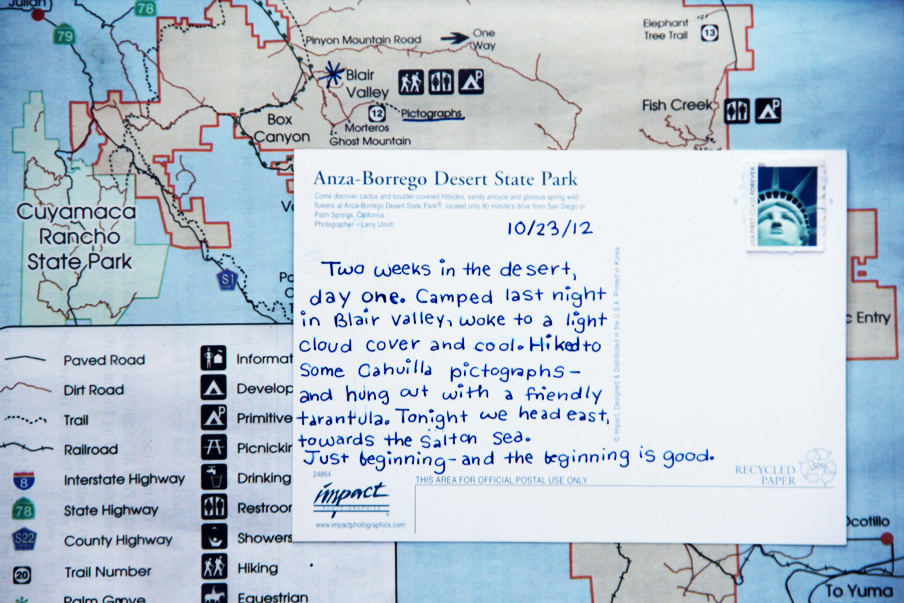 Julian
78
79
Pinyon Mountain Road
One
Way
Elephant
Tree Trail
13
Blair
Valley
12
Pictographs
Morteros
Ghost Mountain
Box
Canyon
Fish Creek
Cuyamaca
Rancho
State Park
S1
Entry
Anza-Borrego Desert State Park
Come discover cactus and boulder-covered hillsides, sandy arroyos and glorious spring wild-
flowers at Anza-Borrego Desert State Park®, located only 90 minute's drive from San Diego or
Palm Springs, California.
Photographer –Larry Ulrich
USA FIRST-CLASS FOREVER
10/23/12
Two weeks in the desert,
day one. Camped last night
in Blair Valley, woke to a light
cloud cover and cool. Hiked to
some Cahuilla pictographs—
and hung out with a friendly
tarantula. Tonight we head east,
towards the Salton Sea.
Just beginning—and the beginning is good.
© Impact, Designed & Distributed in the U.S.A. Printed in Korea
24864
impact
www.impactphotographics.com
THIS AREA FOR OFFICIAL POSTAL USE ONLY
RECYCLED
PAPER
Paved Road
Dirt Road
Trail
Railroad
8 Interstate Highway
78 State Highway
S22 County Highway
20 Trail Number
Palm Grove
Informat
Develop
Primitive
Picnickin
Drinking
Restroor
Showers
Hiking
Equestrian
Ocotillo
To Yuma